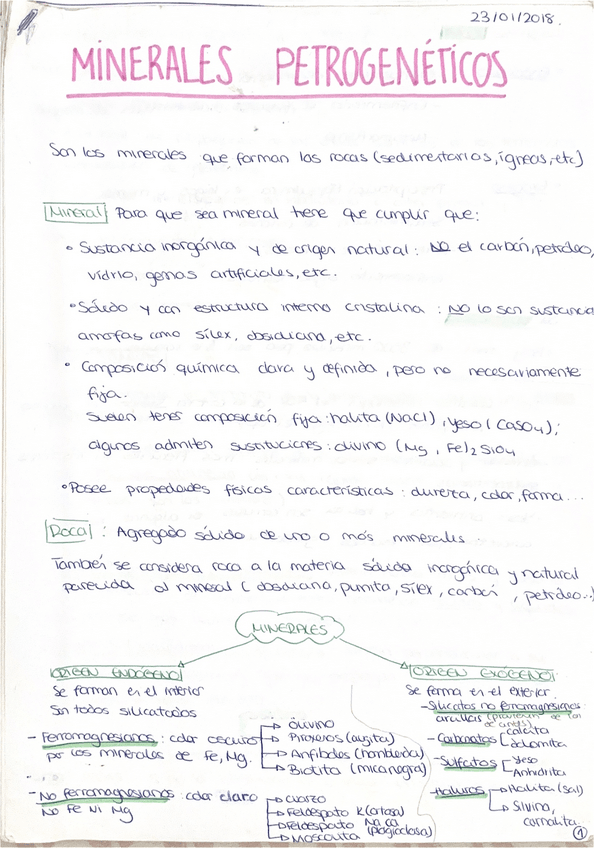 23/01/2018.
MINERALES PETROGENÉTICOS
Son los minerales que forman las rocas (sedimentarios, ígneas, etc)
Mineral Para que sea mineral tiene que cumplir que:
• Sustancia inorgánica y de origen natural: NO el carbón, petróleo,
vidrio, gemas artificiales, etc.
• Sólido y con estructura interna cristalina: NO lo son sustancia
amorfas como sílex, obsidiana, etc.
• Composición química clara y definida, pero no necesariamente
fija.
Suelen tener composición fija: halita (NaCl), yeso (CaSO4);
algunos admiten sustituciones: olivino (Mg, Fe)2 SiO4
• Posee propiedades físicas características: dureza, color, forma...
Roca: Agregado sólido de uno o más minerales
También se considera roca a la materia sólida inorgánica y natural
parecida al mineral (obsidiana, pumita, sílex, carbón, petróleo...)
MINERALES
ORIGEN ENDÓGENO
Se forman en el interior
Son todos silicatados
- Ferromagnesianos: color oscuro
por los minerales de Fe, Mg.
Olivino
Piroxenos (augita)
Anfíboles (hornblenda)
Biotita (mica negra)
- No ferromagnesianos: color claro
No Fe Ni Mg
Cuarzo
Feldespato K (ortosa)
Feldespato Na Ca (plagioclasa)
Moscovita
ORIGEN EXÓGENO
Se forma en el exterior.
- Silicatos no ferromagnesianos
arcillas
- Carbonatos
calcita
dolomita
- Sulfatos
Yeso
Anhidrita
- Haluros
Halita (sal)
Silvina,
carnalita.
1